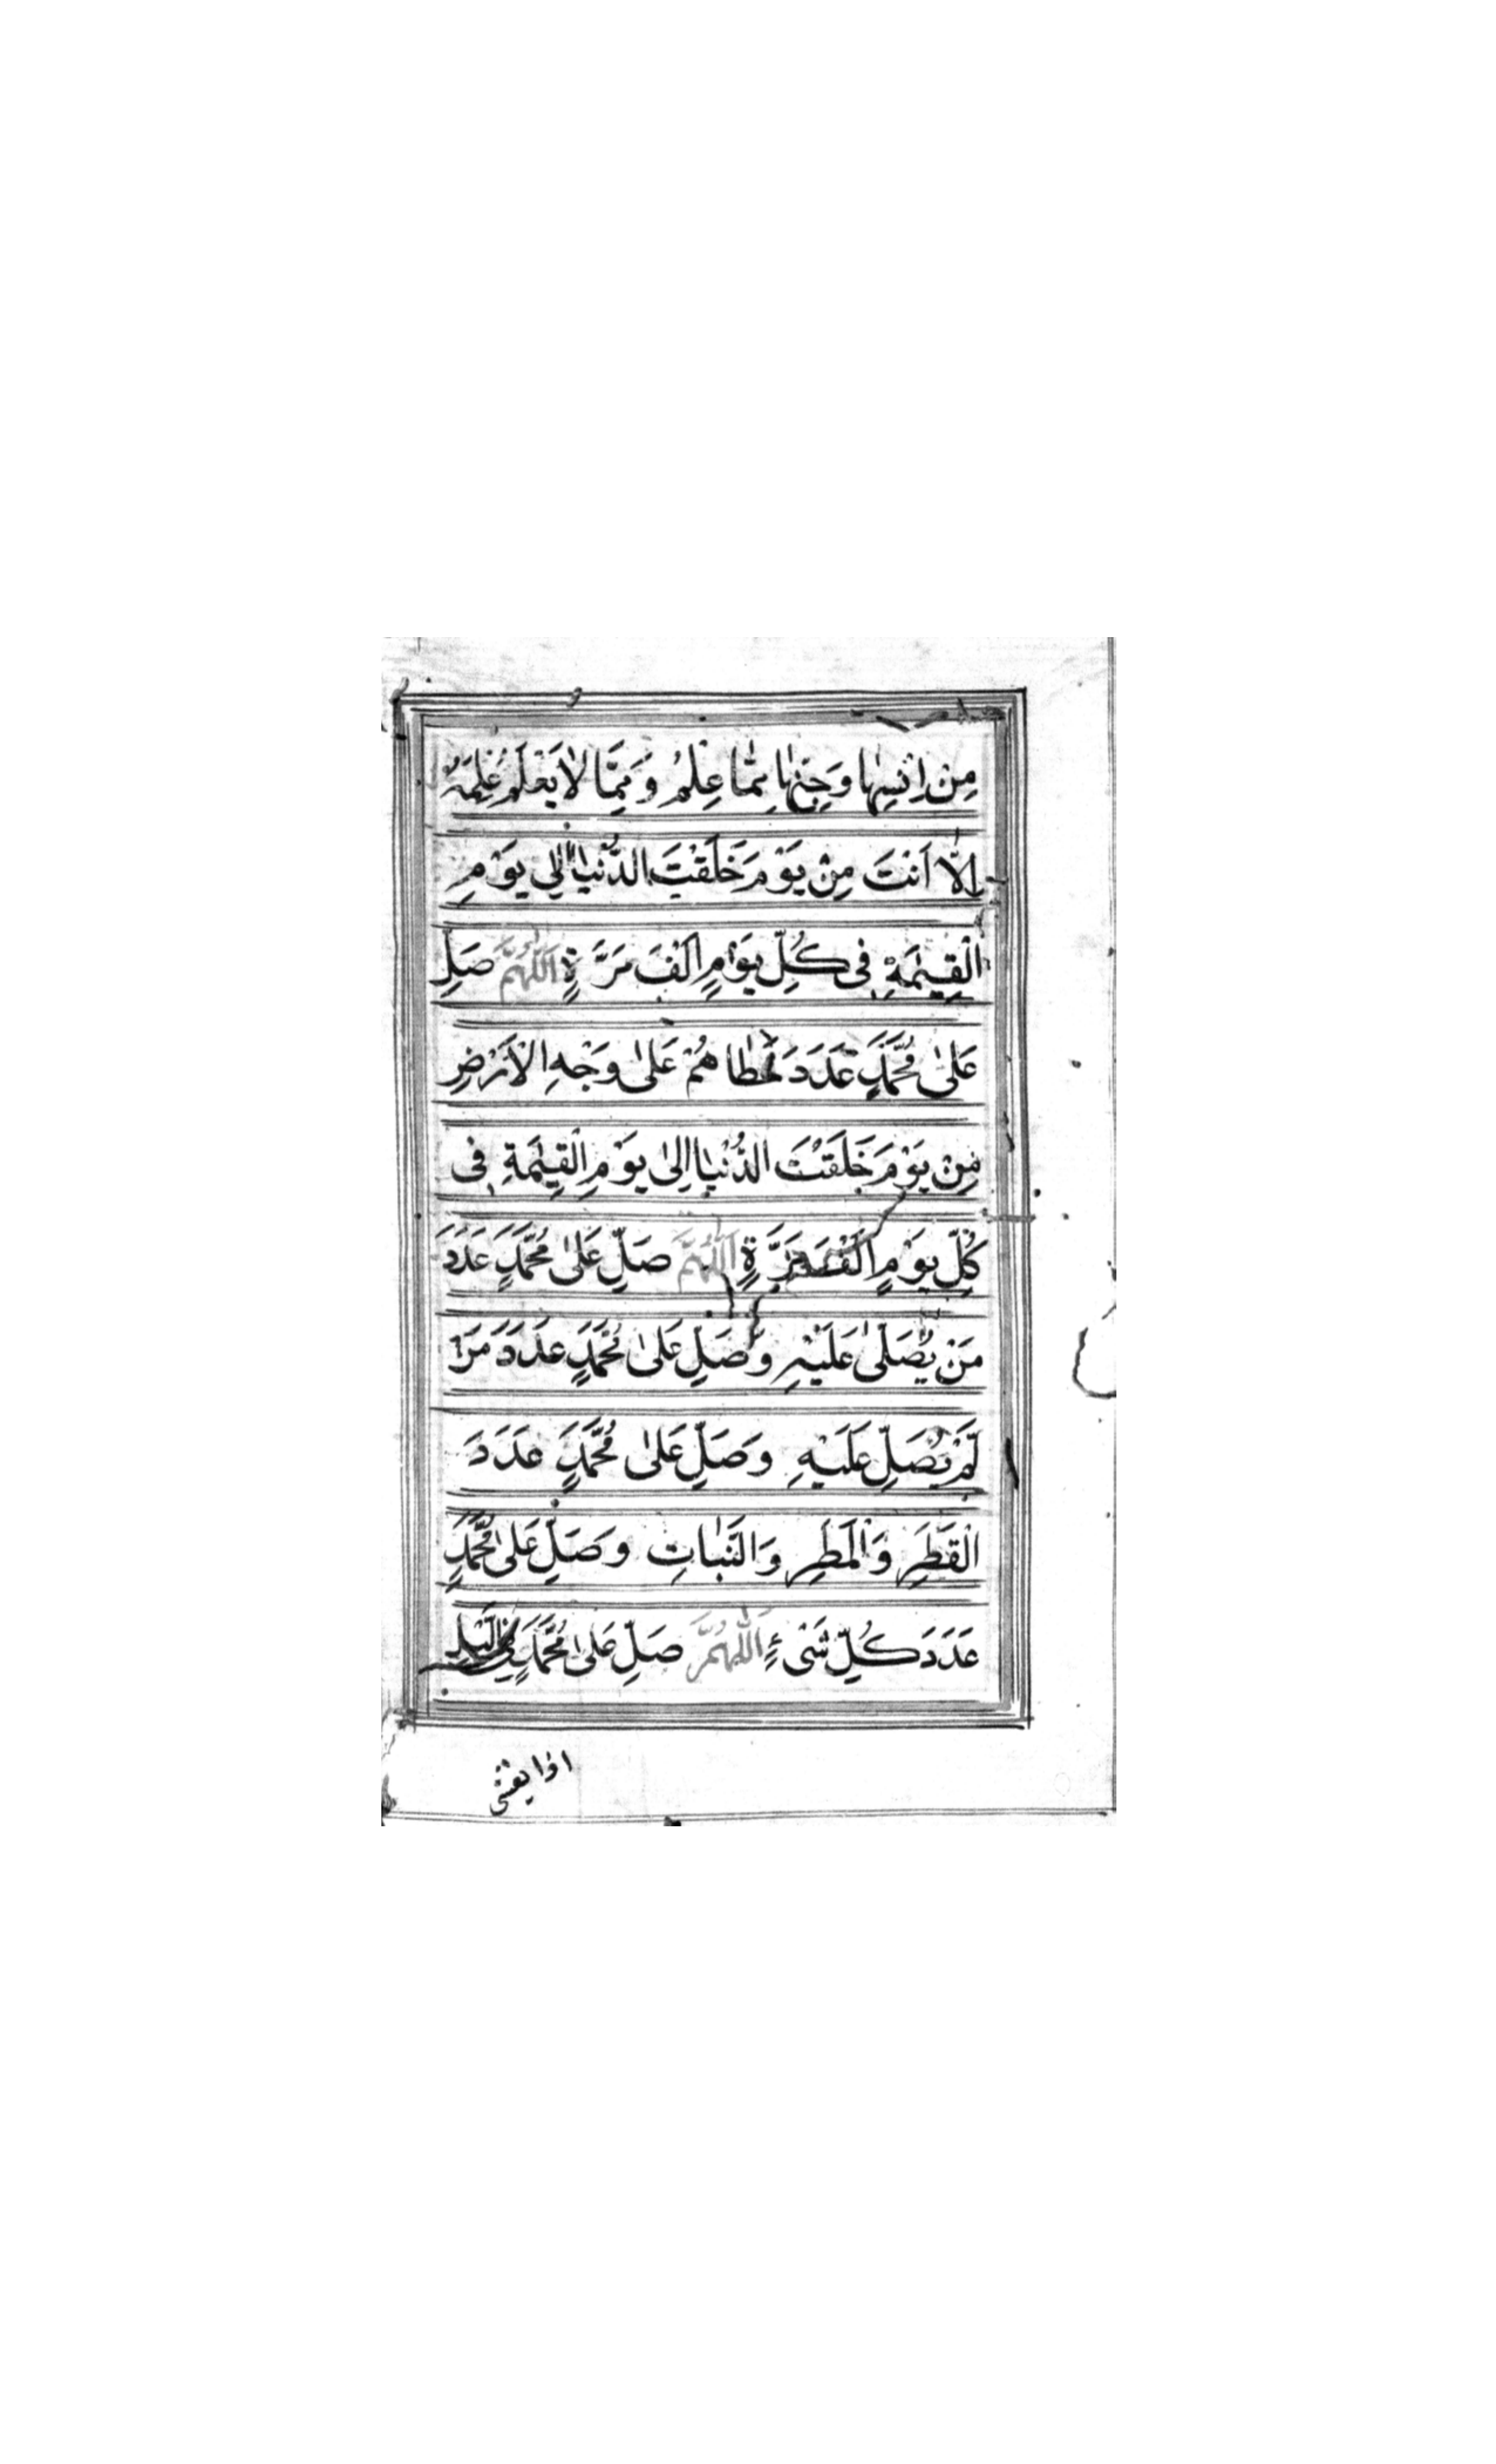 مِنْ اِنْسِهَا وَجِنِّهَا مِمَّا عِلْمُ وَمِمَّا لَا يَعْلَمُ عِلْمَهُ
اِلَّا اَنْتَ مِنْ يَوْمَ خَلَقْتَ الدُّنْيَا اِلٰى يَوْمِ
الْقِيٰمَةِ فِى كُلِّ يَوْمٍ اَلْفَ مَرَّةٍ اَللّٰهُمَّ صَلِّ
عَلٰى مُحَمَّدٍ عَدَدَ خُطَاهُمْ عَلٰى وَجْهِ الْاَرْضِ
مِنْ يَوْمَ خَلَقْتَ الدُّنْيَا اِلٰى يَوْمِ الْقِيٰمَةِ فِى
كُلِّ يَوْمٍ اَلْفَ مَرَّةٍ اَللّٰهُمَّ صَلِّ عَلٰى مُحَمَّدٍ عَدَدَ
مَنْ يُّصَلِّىْ عَلَيْهِ وَصَلِّ عَلٰى مُحَمَّدٍ عَدَدَ مَنْ
لَّمْ يُصَلِّ عَلَيْهِ وَصَلِّ عَلٰى مُحَمَّدٍ عَدَدَ
الْقَطْرِ وَالْمَطَرِ وَالنَّبَاتِ وَصَلِّ عَلٰى مُحَمَّدٍ
عَدَدَ كُلِّ شَىْءٍ اَللّٰهُمَّ صَلِّ عَلٰى مُحَمَّدٍ فِى الَّيْلِ
اذا يغشى